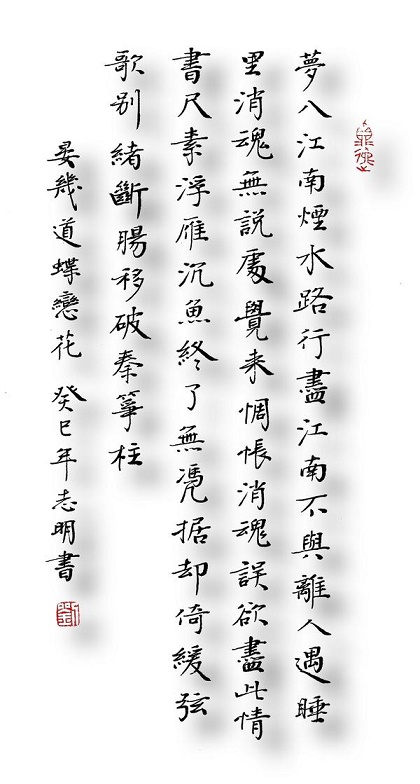 夢入江南煙水路行盡江南不與離人遇睡
里消魂無說處覺来惆悵消魂誤欲盡此情
書尺素浮雁沉魚終了無凴据却倚緩弦
歌别緒斷腸移破秦箏柱
晏幾道蝶戀花 癸巳年志明書